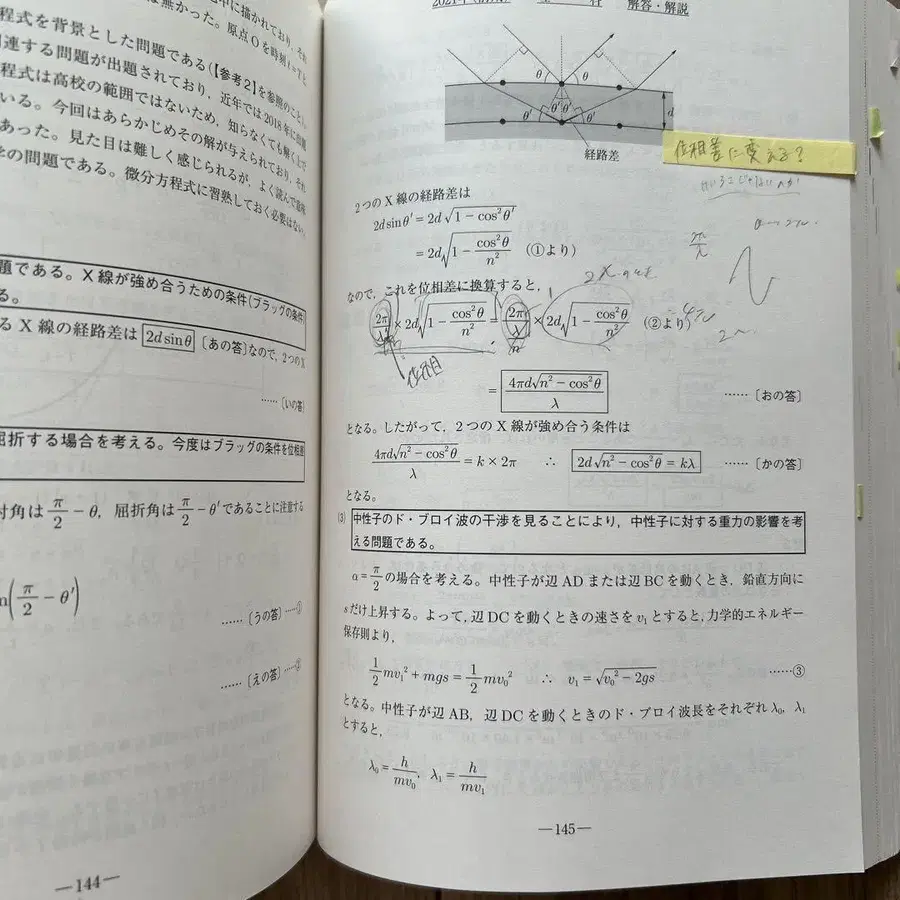 中に描かれており、それ
は無かった。原点Oを時刻 t=Tに
程式を背景とした問題である(【参考2】を参照のこと)。
連する問題が出題されており、近年では2018年に前期
程式は高校の範囲ではないため、知らなくても解く上で
いる。今回はあらかじめその解が与えられており、それ
あった。見た目は難しく感じられるが、よく読んで意味
の問題である。微分方程式に習熟しておく必要はない。
題である。X線が強め合うための条件(ブラッグの条件)
る。
るX線の経路差は 2d sinθ 〔あの答〕なので、2つのX
……〔いの答〕
屈折する場合を考える。今度はブラッグの条件を位相差
射角は π/2 − θ, 屈折角は π/2 − θ′ であることに注意する
n(π/2 − θ′)
……〔うの答〕……①
……〔えの答〕……②
—144—
解答・解説
θ θ
θ′ θ′ θ′ θ′
d
経路差
位相差に変える?
2つのX線の経路差は
2d sinθ′ = 2d√(1 − cos²θ′)
= 2d√(1 − cos²θ/n²) (①より)
なので、これを位相差に換算すると、
2π/λ′ × 2d√(1 − cos²θ/n²) = 2π/(λ/n) × 2d√(1 − cos²θ/n²) (②より)
位相
2π/λ
= 4πd√(n² − cos²θ)/λ ……〔おの答〕
となる。したがって、2つのX線が強め合う条件は
4πd√(n² − cos²θ)/λ = k × 2π ∴ 2d√(n² − cos²θ) = kλ ……〔かの答〕
となる。
(3) 中性子のド・ブロイ波の干渉を見ることにより、中性子に対する重力の影響を考
える問題である。
α = π/2 の場合を考える。中性子が辺ADまたは辺BCを動くとき、鉛直方向に
sだけ上昇する。よって、辺DCを動くときの速さをv₁とすると、力学的エネルギー
保存則より、
1/2 mv₁² + mgs = 1/2 mv₀² ∴ v₁ = √(v₀² − 2gs) ……③
となる。中性子が辺AB, 辺DCを動くときのド・ブロイ波長をそれぞれλ₀, λ₁
とすると、
λ₀ = h/mv₀, λ₁ = h/mv₁
—145—